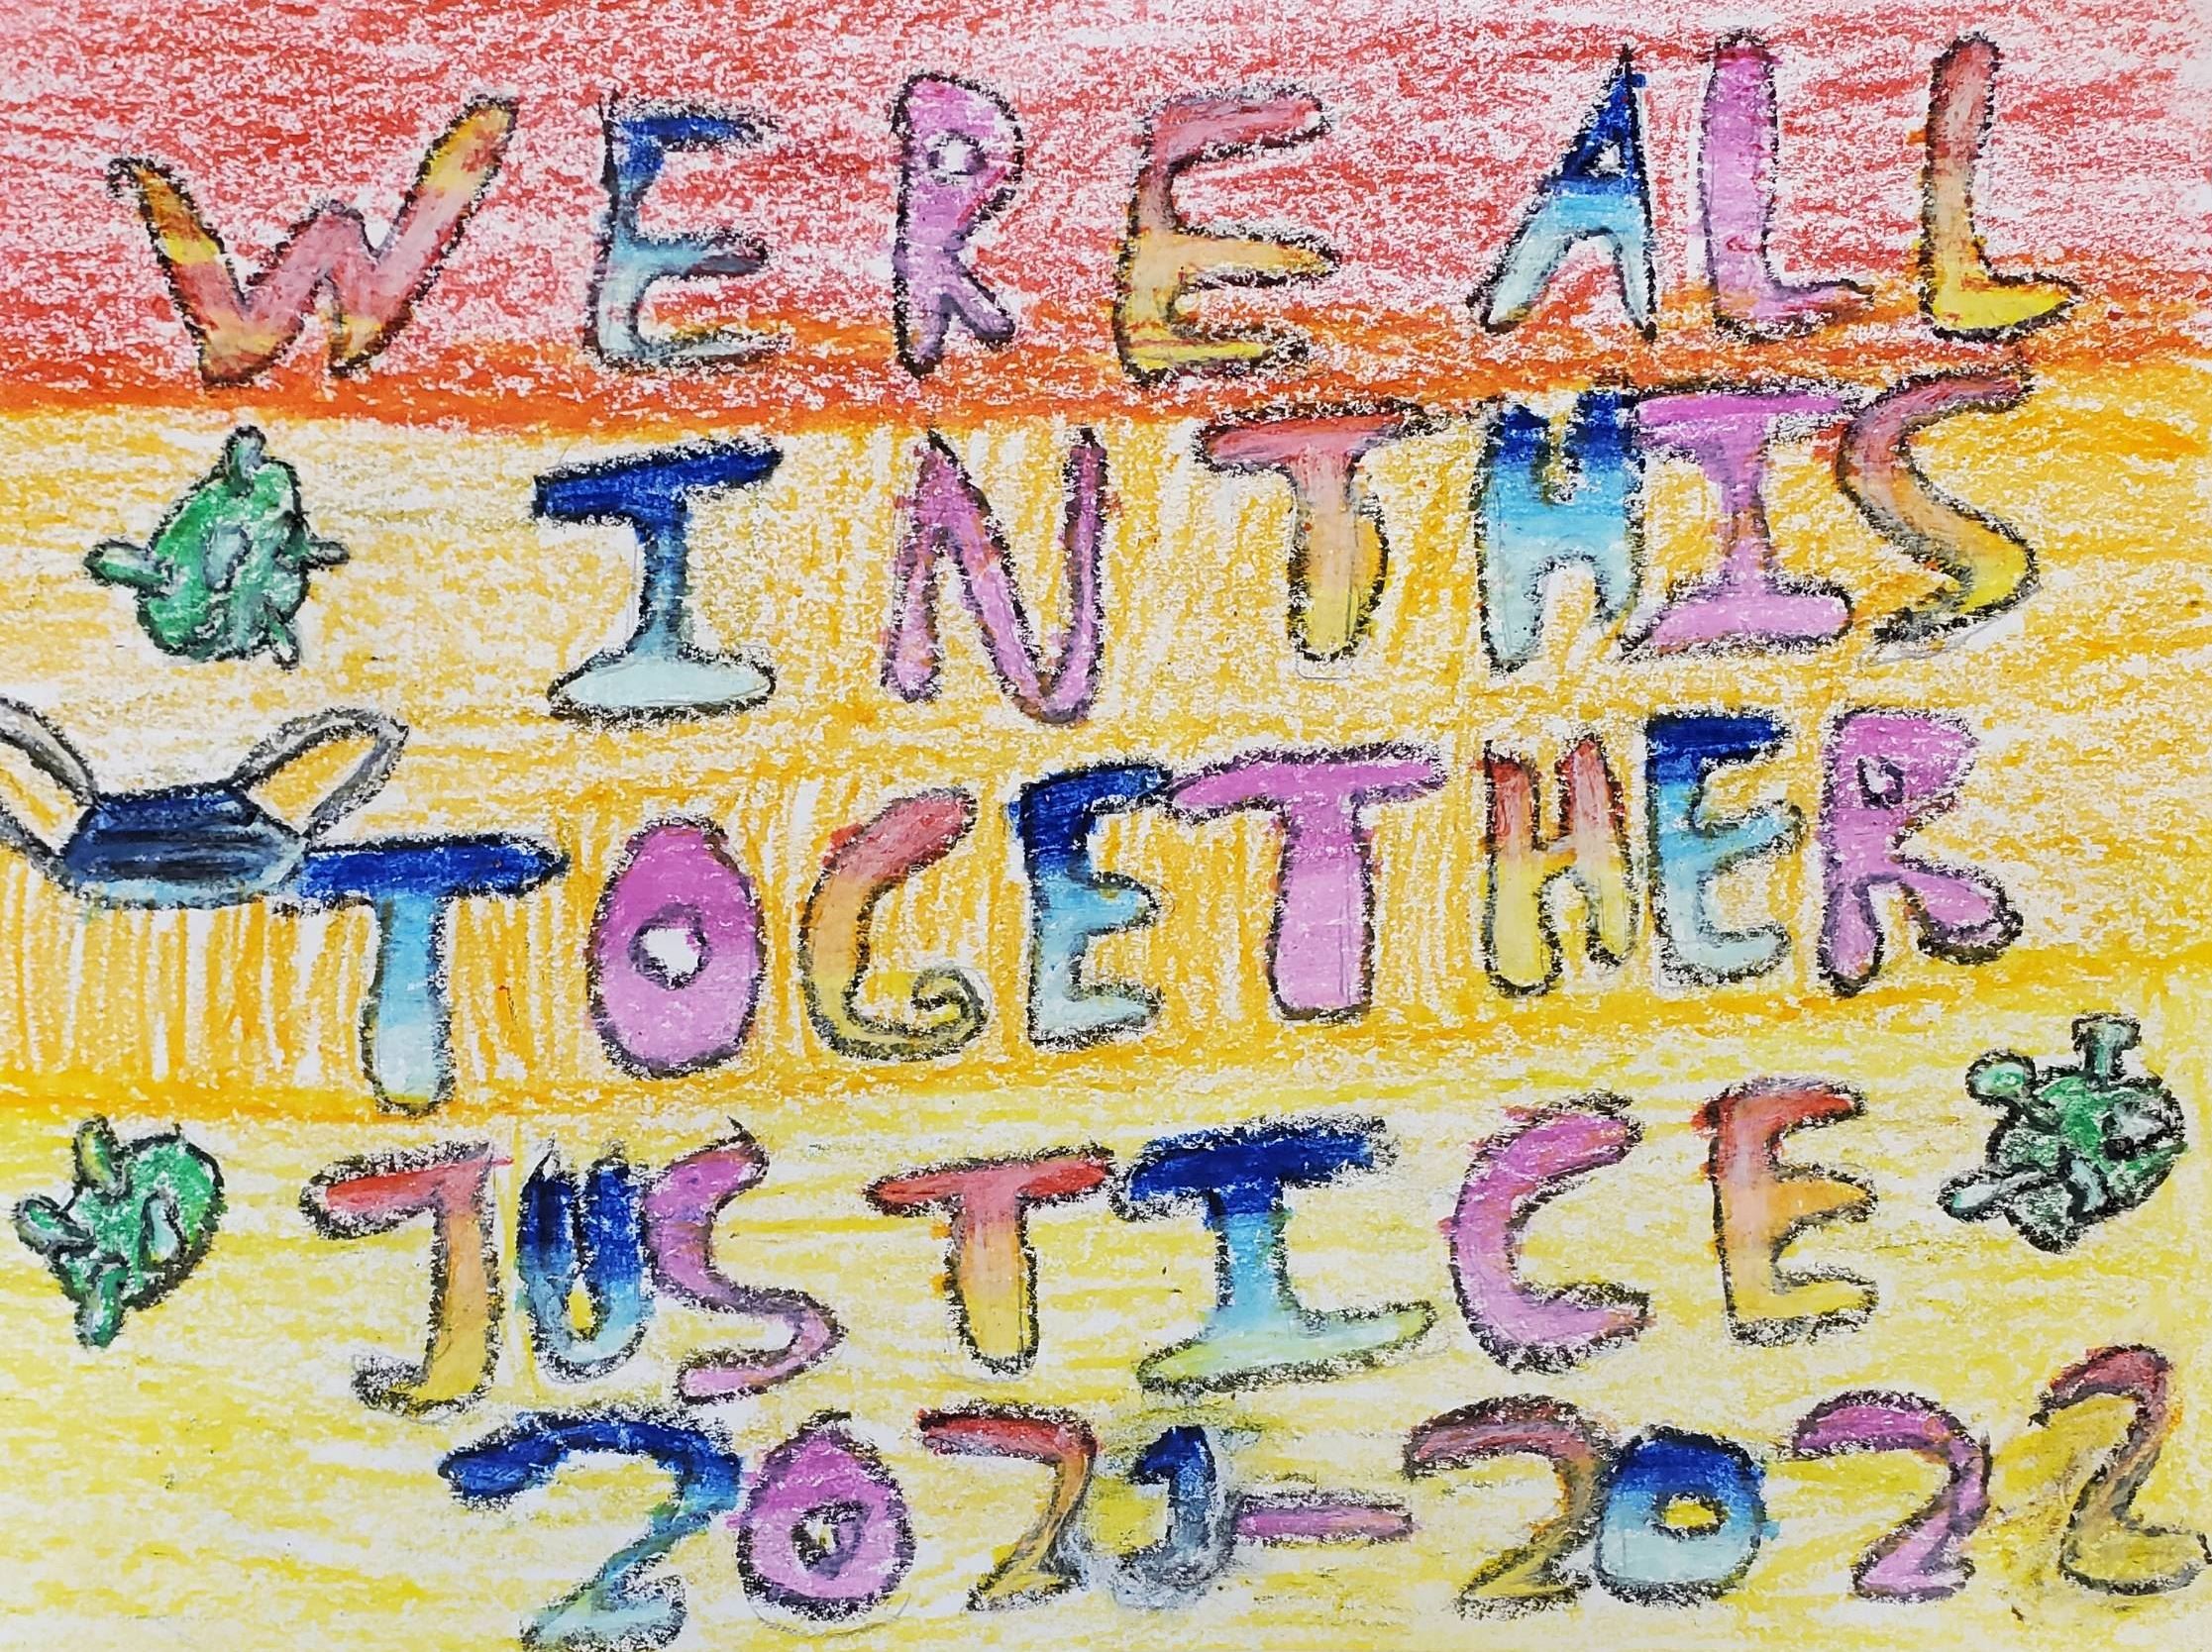 WERE ALL
IN THIS
TOGETHER
JUSTICE
2021-2022